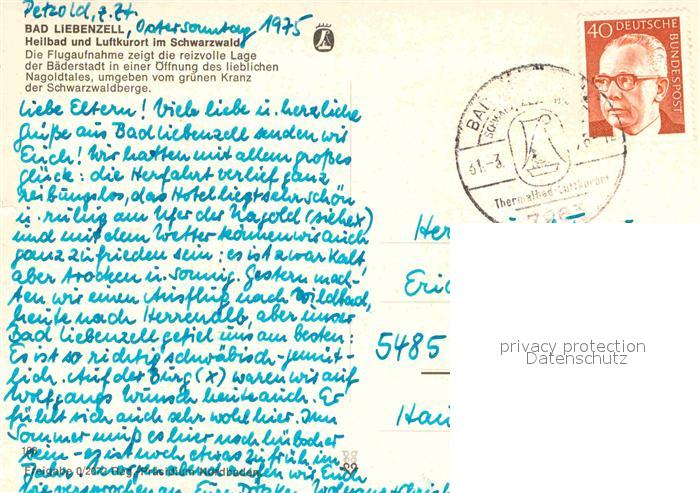 Petzold, z. Zt.
BAD LIEBENZELL, Ostersonntag 1975
Heilbad und Luftkurort im Schwarzwald
Die Flugaufnahme zeigt die reizvolle Lage
der Bäderstadt in einer Öffnung des lieblichen
Nagoldtales, umgeben vom grünen Kranz
der Schwarzwaldberge.
Liebe Eltern! Viele liebe u. herzliche
Grüße aus Bad Liebenzell senden wir
Euch! Wir hatten mit allem großes
Glück: die Herfahrt verlief ganz
reibungslos, das Hotel liegt sehr schön
u. ruhig am Ufer der Nagold (siehe x)
und mit dem Wetter können wir auch
ganz zufrieden sein: es ist zwar kalt,
aber trocken u. sonnig. Gestern mach-
ten wir einen Ausflug nach Wildbad,
heute nach Herrenalb, aber unser
Bad Liebenzell gefiel uns am besten:
Es ist so richtig schwäbisch-gemüt-
lich. Auf der Burg (x) waren wir auf
Wolfgangs Wunsch heute auch. Er
fühlt sich auch sehr wohl hier. Im
Sommer muß es hier noch hübscher
sein - es ist noch etwas zu früh im
Freigabe Reg. Präsidium Nordbaden
wir Euch
40 DEUTSCHE
BUNDESPOST
BAD
31.-3.
Thermalbad-Luftkurort
Her
Eric
5485
Hau
privacy protection
Datenschutz